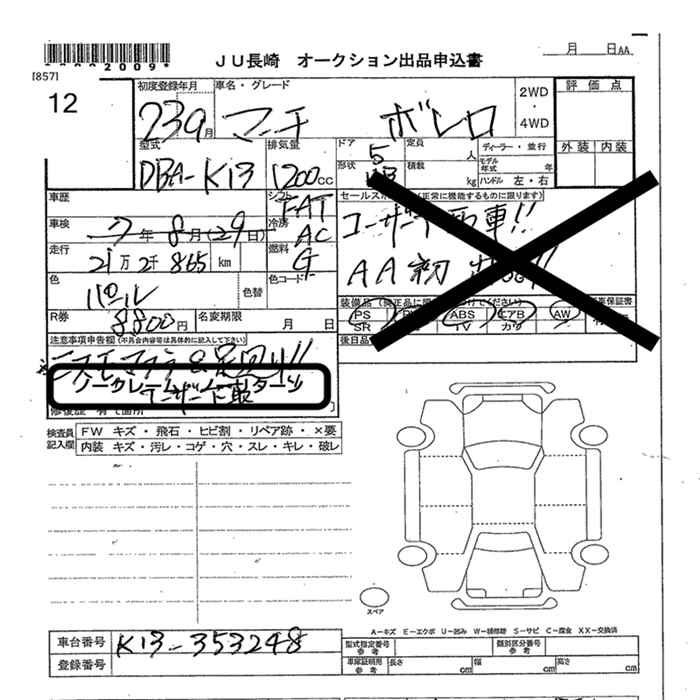 月 日AA
00002009*
JU長崎 オークション出品申込書
[857]
12
初度登録年月
車名・グレード
23 9月
マーチ ボレロ
2WD
・
4WD
評価点
外装 内装
型式
DBA-K13
排気量
1200cc
ドア
5
形状
定員
人
積載
kg
ディーラー・並行
モデル年式 年
ハンドル 左・右
車歴
シフト
FAT
車検
7年8月(29日)
冷房
AC
走行
2万2千865km
燃料
G
色
パール
色替
色コード
R券
8800円
名変期限
月 日
セールスポイント(正常に機能するものに限ります)
ユーザー買取車!!
AA初出品!!
装備品(純正品に限り○を付けてください)
PS
ABS
エアB
AW
SR
TV
カワ
保証書
後日品
注意事項申告欄(不具合内容等は具体的に記入して下さい)
検査員記入欄
FW キズ・飛石・ヒビ割・リペア跡・×要
内装 キズ・汚レ・コゲ・穴・スレ・キレ・破レ
スペア
A-キズ E-エクボ U-凹み W-補修跡 S-サビ C-腐食 XX-交換済
車台番号
K13-353248
登録番号
型式指定番号参考
類別区分番号参考
車庫証明用参考
長さ cm
幅 cm
高さ cm